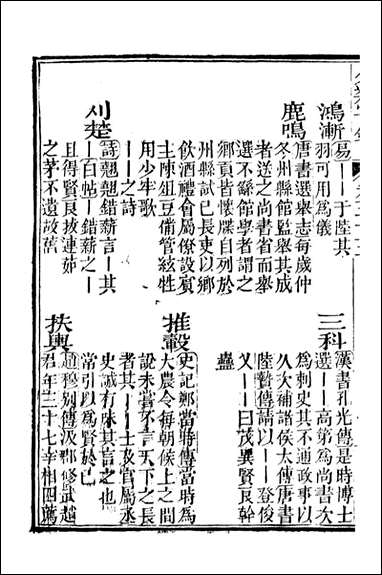 鴻漸
易——于陸其
羽可用為儀
鹿鳴
唐書選舉志每歲仲
冬州縣館監舉其成
者送之尚書省而舉
選不繇館學者謂之
鄉貢皆懷牒自列於
州縣試已長吏以鄉
飲酒禮會屬僚設賓
主陳俎豆備管絃牲
用少牢歌
——之詩
刈楚
詩翹翹錯薪言—其
—白帖—錯薪之—
且得賢良拔連茹
之茅不遺故舊
三科
漢書孔光傳是時博士
選——高第為尚書次
為刺史其不通政事以
久次補諸侯太傅唐書
陸贄傳請以——登俊
乂—曰茂異賢良幹
蠱
推轂
史記鄭當時傳當時為
大農令每朝候上之間
說未嘗不言天下之長
者其——士及官屬丞
史誠有味其言之也
常引以為賢於已
扶輿
趙穆別傳汲郡修武趙
君年三十七宰相四薦